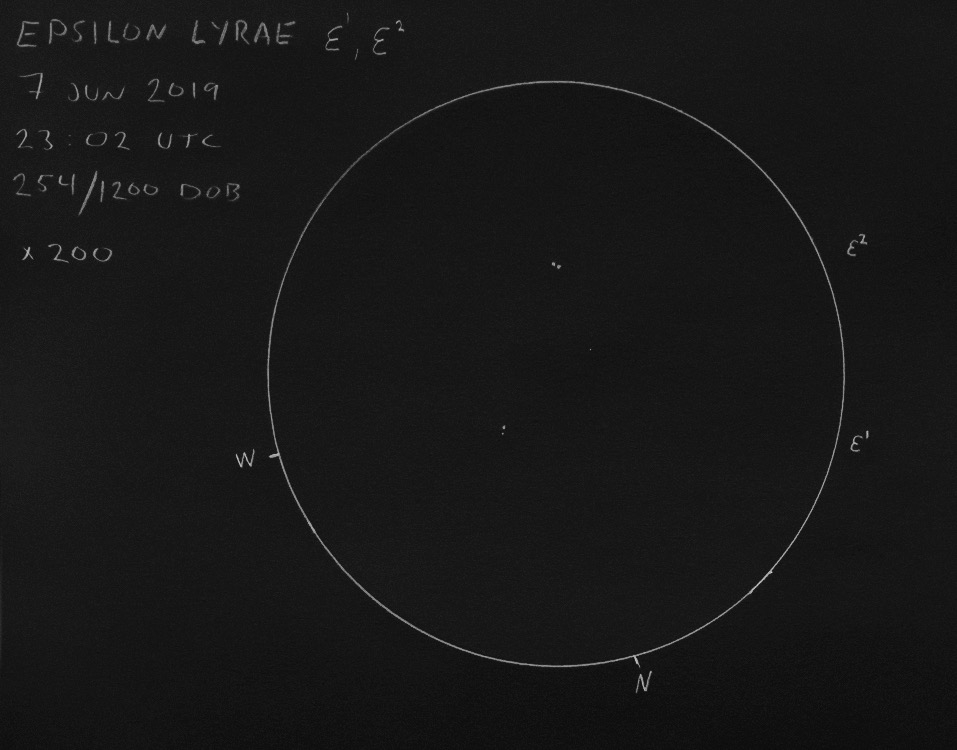 EPSILON LYRAE ε¹, ε²
7 JUN 2019
23:02 UTC
254/1200 DOB
x 200
ε²
ε¹
W
N